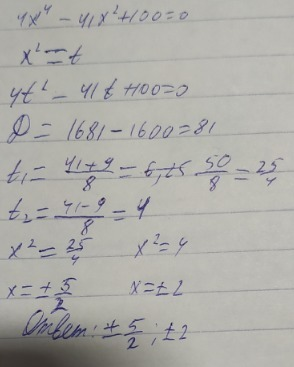 4x⁴ - 41x² + 100 = 0
x² = t
4t² - 41t + 100 = 0
D = 1681 - 1600 = 81
t₁ = (41+9)/8 = 50/8 = 25/4
t₂ = (41-9)/8 = 4
x² = 25/4 x² = 4
x = ± 5/2 x = ±2
Ответ: ± 5/2 ; ±2